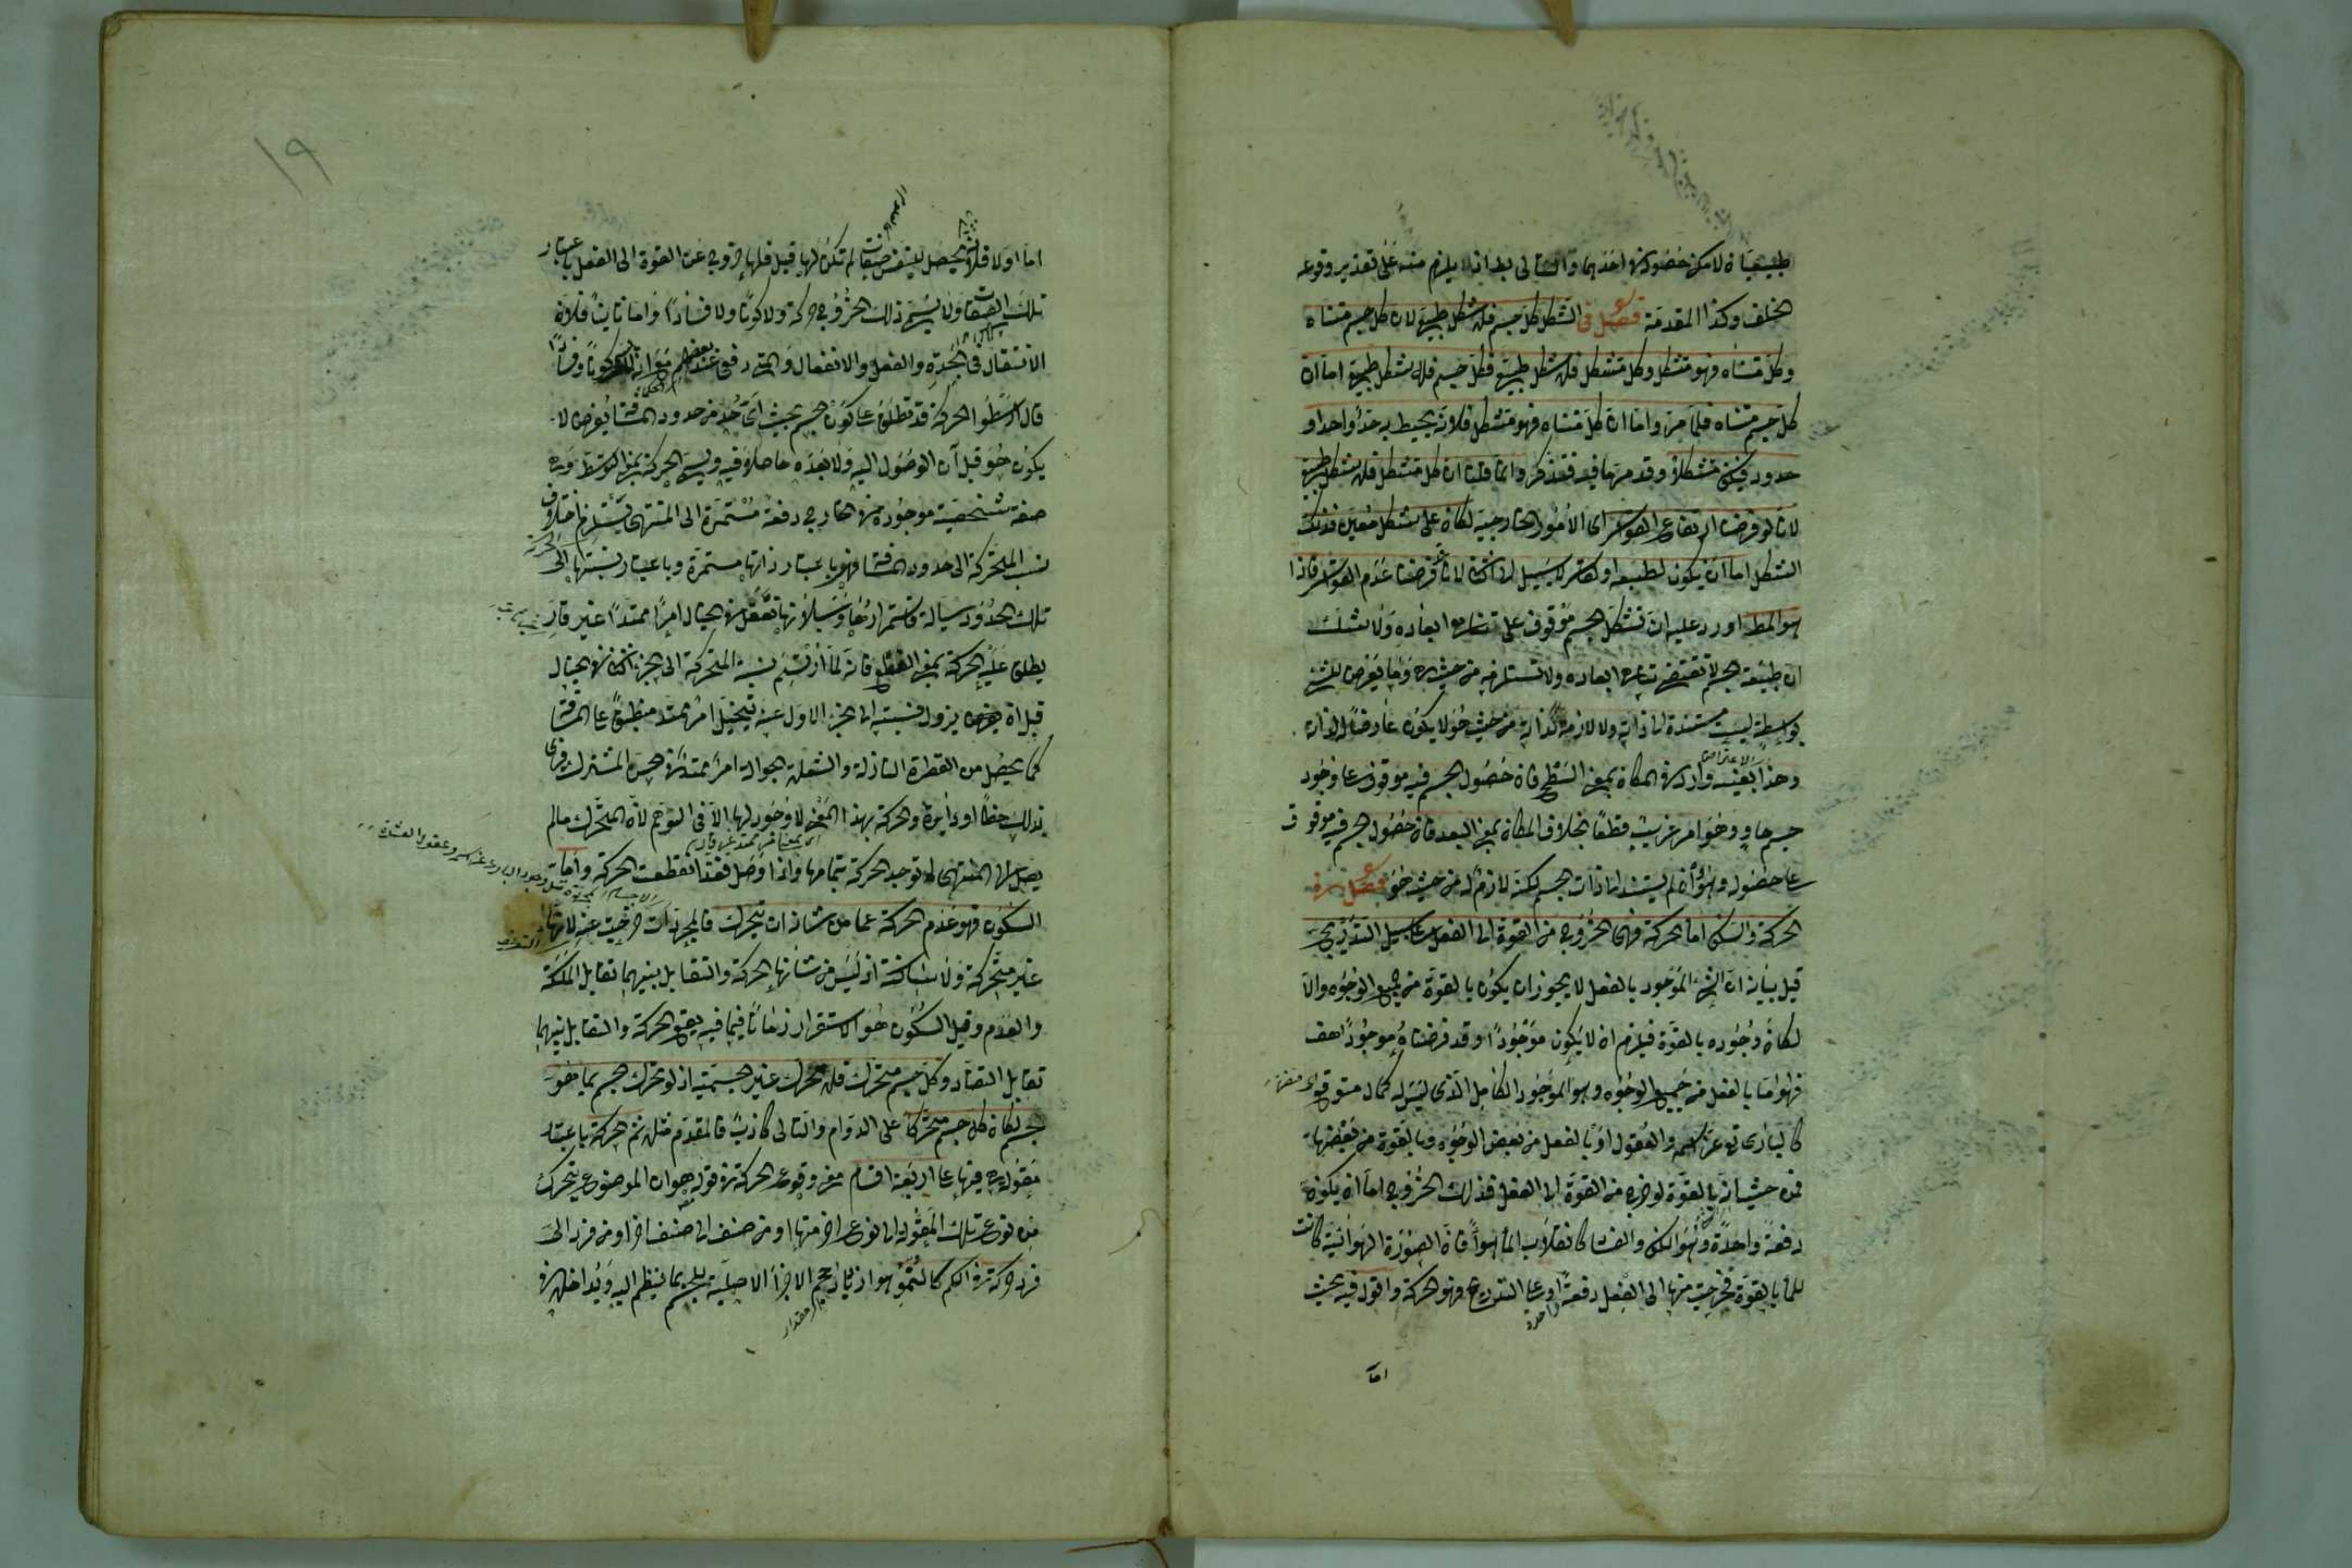 طبيعيان لامكن حصوله في احدهما والتالى بط اذ لا يلزم منه على تقدير وقوعه
الخلف وكذا المقدمة فصل فى الشكل كل جسم فله شكل طبيعى لان كل جسم متناه
وكل متناه فهو متشكل وكل متشكل فله شكل طبيعى فكل جسم فله شكل طبيعى اما ان
كل جسم متناه فلما مر واما ان كل متناه فهو متشكل فلانه يحيط به حد واحد او
حدود فيكون متشكلا وقد مر ما فيه فتذكر وانما قلنا ان كل متشكل فله شكل طبيعى
لانا لو فرضنا ارتفاع القواسر اى الامور الخارجية لكان على شكل معين وذلك
الشكل اما ان يكون لطبعه او لقاسر لا سبيل الى الثانى لانا فرضنا عدم القواسر فاذا
هو المط اورد عليه ان تشكل الجسم موقوف على تناهى ابعاده ولا شك
ان طبيعة الجسم لا تقتضى تناهى ابعاده ولا تستلزمه من حيث هى وما يعرض للشئ
بواسطة ليست مستندة الى ذاته ولا لازمة لذاته من حيث هو لا يكون عارضا لذاته
وهذا بعينه وارد فى المكان بمعنى السطح فان حصول الجسم فيه موقوف على وجود
الاعتراض
جسم حاو وهو امر غريب قطعا بخلاف المكان بمعنى البعد فان حصول الجسم فيه موقوف
على حصوله وهو وان لم يستند الى ذات الجسم لكنه لازم له من حيث هو فصل فى
الحركة والسكون اما الحركة فهى الخروج من القوة الى الفعل على سبيل التدريج
قيل بيانه ان الشئ الموجود بالفعل لا يجوز ان يكون بالقوة من جميع الوجوه والا
لكان وجوده بالقوة فيلزم ان لا يكون موجودا وقد فرضناه موجودا هف
فهو اما بالفعل من جميع الوجوه وهو الموجود الكامل الذى ليس له كمال متوقع
كالبارى تع عز اسمه والعقول او بالفعل من بعض الوجوه وبالقوة من بعضها
فمن حيث انه بالقوة لو خرج من القوة الى الفعل فذلك الخروج اما ان يكون
دفعة واحدة وهو الكون والفساد كانقلاب الماء هواء فان الصورة الهوائية كانت
للماء بالقوة فخرجت منها الى الفعل دفعة او على التدريج فهو الحركة واقول فيه بحث
واحدة
اما
١٩
اما اولا فلانه يحصل للنفس صفات لم تكن لها قبل فلها خروج عن القوة الى الفعل باعتبار
تلك الصفات ولا يسمى ذلك الخروج حركة ولا كونا ولا فسادا واما ثانيا فلان
الانتقال فى الجدة والفعل والانفعال والمتى دفعى عند بعضهم مع انه لا يسمى كونا وفسادا
قال ارسطو الحركة قد تطلق على كون الجسم بحيث اى حد من حدود المسافة يفرض لا
يكون هو قبل آن الوصول اليه ولا بعده حاصلا فيه ويسمى الحركة بمعنى التوسط وهى
صفة شخصية موجودة فى الخارج دفعة مستمرة الى المنتهى تستلزم اختلاف
نسب المتحركة الى حدود المسافة فهى باعتبار ذاتها مستمرة وباعتبار نسبتها الى
تلك الحدود سيالة فاستمرارها وسيلانها تفعل فى الخيال امرا ممتدا غير قار
يطلق عليه الحركة بمعنى القطع فانه لما ارتسم نسبة المتحركة الى الجزء الثانى فى الخيال
قبل ان يزول نسبته الى الجزء الاول عنه يتخيل امر ممتد منطبق على المسافة
كما يحصل من القطرة النازلة والشعلة الجوالة امر ممتد فى الحس المشترك فيرى
بذلك خطا او دائرة والحركة بهذا المعنى لا وجود لها الا فى التوهم لان المتحرك ما لم
يصل الى المنتهى لم توجد الحركة بتمامها واذا وصل فقد انقطعت الحركة واما
السكون فهو عدم الحركة عما من شانه ان يتحرك فالمجردات خرجت عنه لانها
غير متحركة ولا ساكنة اذ ليس من شانها الحركة والتقابل بينهما تقابل الملكة
والعدم وقيل السكون هو الاستقرار زمانا فيما فيه يقع الحركة والتقابل بينهما
تقابل التضاد وكل جسم متحرك فله محرك غير الجسمية اذ لو تحرك الجسم بما هو
جسم لكان كل جسم متحركا على الدوام والتالى كاذب فالمقدم مثله ثم الحركة باعتبار
مقولة هى فيها على اربعة اقسام معنى وقوع الحركة فى مقولة هو ان الموضوع يتحرك
من نوع تلك المقولة الى نوع اخر منها او من صنف الى صنف اخر او من فرد الى
فرد حركة فى الكم كالنمو هو ازدياد حجم الاجزاء الاصلية للجسم بما ينضم اليه ويداخله فى
مقدار